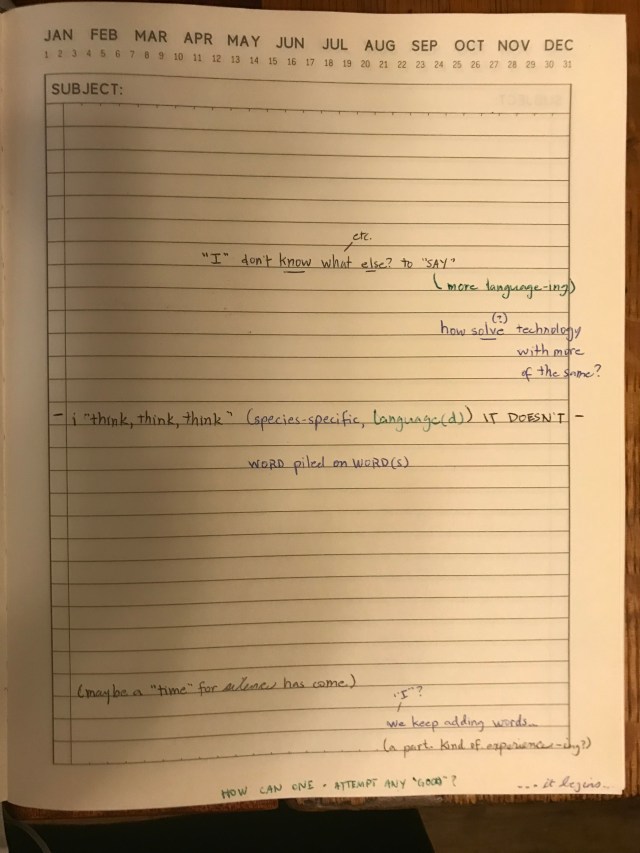 JAN FEB MAR APR MAY JUN JUL AUG SEP OCT NOV DEC
1 2 3 4 5 6 7 8 9 10 11 12 13 14 15 16 17 18 19 20 21 22 23 24 25 26 27 28 29 30 31
SUBJECT:
etc.
"I" don't know what else? to "SAY"
(more language-ing)
(?)
how solve technology
with more
of the same?
- i "think, think, think" (species-specific, language(d)) IT DOESN'T -
WORD piled on WORD(S)
(maybe a "time" for silence has come)
"I"?
we keep adding words...
(a part. kind of experience-ing?)
HOW CAN ONE · ATTEMPT ANY "GOOD"?
...it begins...